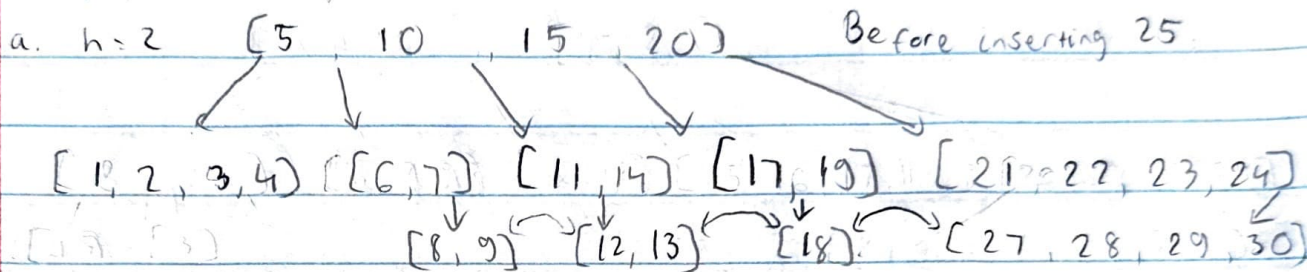 a. h=2 [5 10 , 15 , 20] Before inserting 25
[1, 2, 3, 4] [6, 7] [11, 14] [17, 19] [21, 22, 23, 24]
[8, 9] [12, 13] [18] [27, 28, 29, 30]